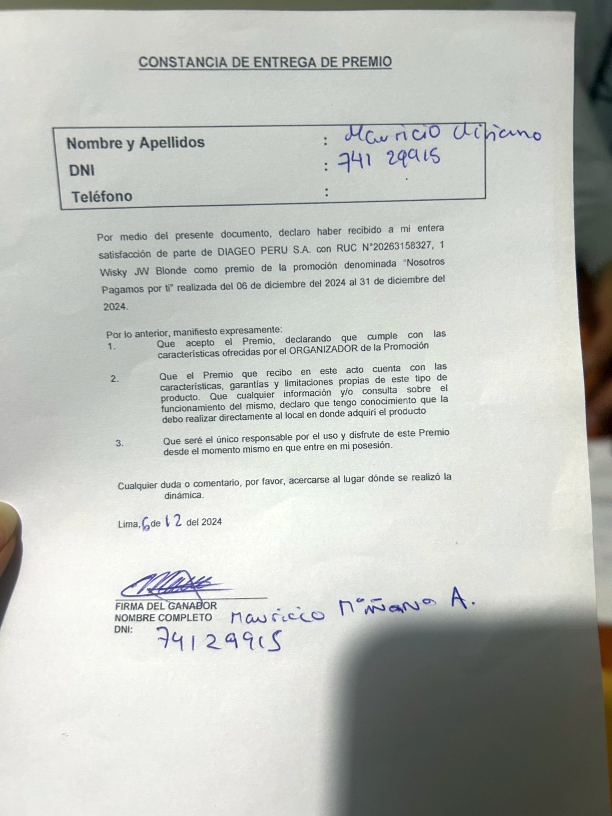 CONSTANCIA DE ENTREGA DE PREMIO
Nombre y Apellidos : Mauricio
DNI : 741 29915
Teléfono :
Por medio del presente documento, declaro haber recibido a mi entera
satisfacción de parte de DIAGEO PERU S.A. con RUC N°20263158327, 1
Wisky JW Blonde como premio de la promoción denominada "Nosotros
Pagamos por ti" realizada del 06 de diciembre del 2024 al 31 de diciembre del
2024.
Por lo anterior, manifiesto expresamente:
1. Que acepto el Premio, declarando que cumple con las
características ofrecidas por el ORGANIZADOR de la Promoción
2. Que el Premio que recibo en este acto cuenta con las
características, garantías y limitaciones propias de este tipo de
producto. Que cualquier información y/o consulta sobre el
funcionamiento del mismo, declaro que tengo conocimiento que la
debo realizar directamente al local en donde adquirí el producto
3. Que seré el único responsable por el uso y disfrute de este Premio
desde el momento mismo en que entre en mi posesión.
Cualquier duda o comentario, por favor, acercarse al lugar dónde se realizó la
dinámica.
Lima, 6 de 12 del 2024
FIRMA DEL GANADOR
NOMBRE COMPLETO Mauricio A.
DNI: 74129915